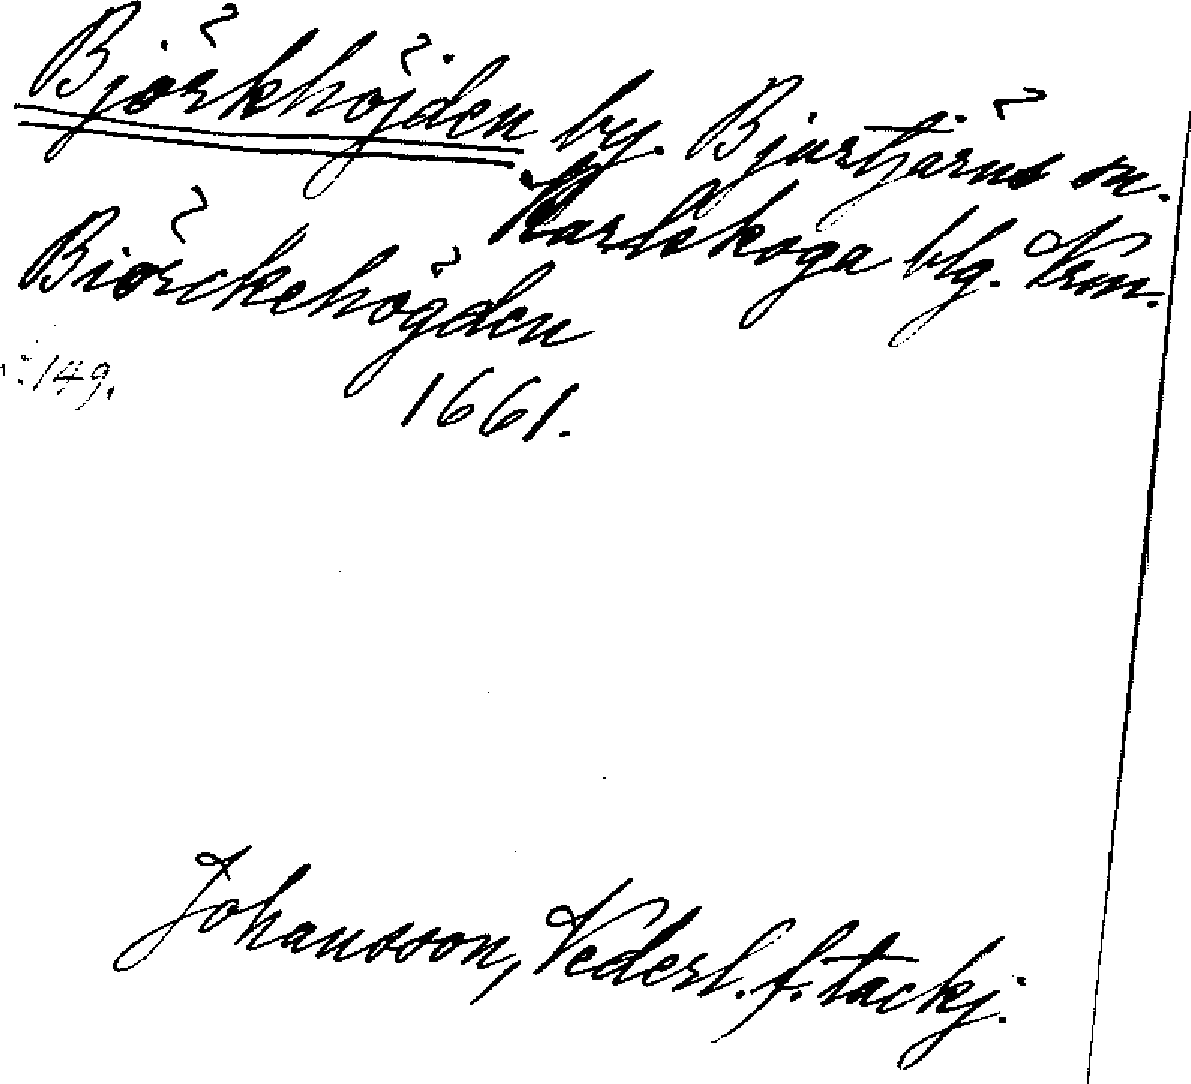 Björkhöjden by. Bjurtjärns sn.
Karlskoga blg. Vrm.
Biörckehögden
:149.
1661.
Johansson, Vederl. f. tackj.